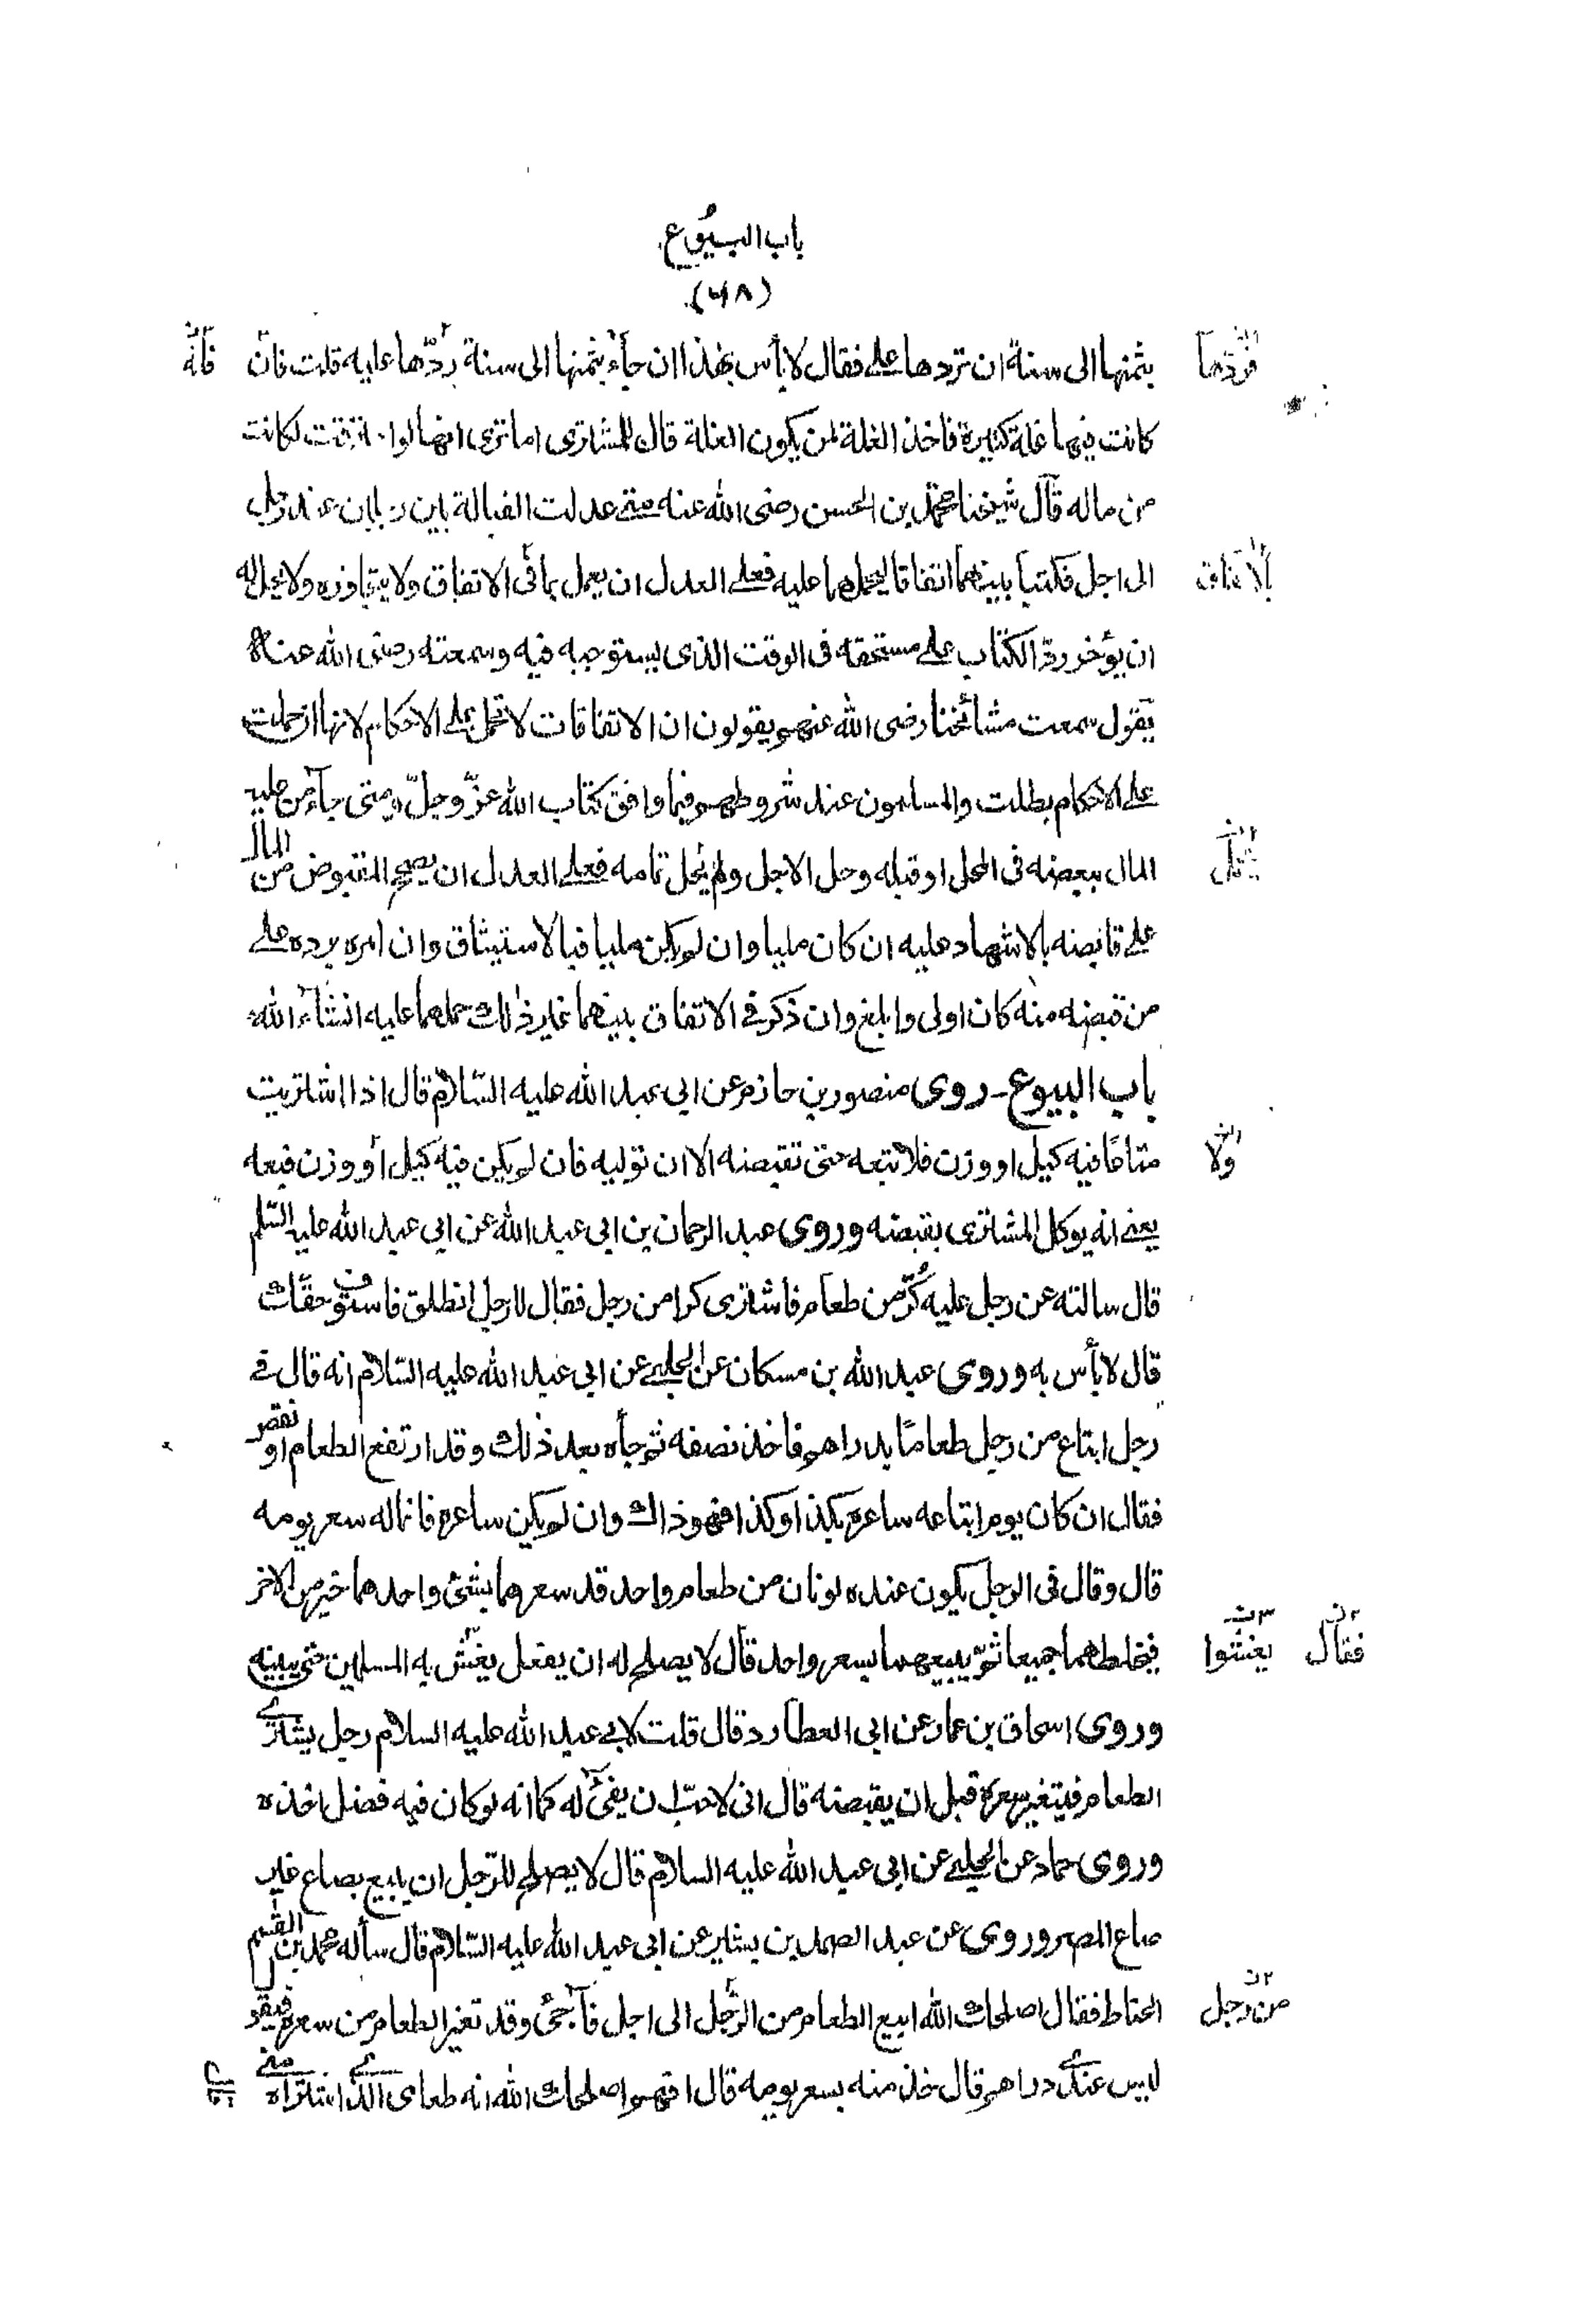 باب البيوع
(٦٨)
بثمنها الى سنة ان تردها على فقال لا بأس بهذا ان جاء بثمنها الى سنة ردّها عليه قلت فان
فردّها
فانه
كانت فيها غلة كثيرة فاخذ الغلة لمن يكون الغلة قال للمشترى اما ترى انها لو احترقت لكانت
من ماله قال شيخنا محمد بن الحسن رضى الله عنه متى عدلت القبالة بين رجلين عند رجل
الى اجل فكتبا بينهما اتفاقا ليحملهما عليه فعلى العدل ان يعمل بما فى الاتفاق ولا يتجاوزه ولا يحل له
بالاتفاق
ان يؤخر ردّ الكتاب على مستحقه فى الوقت الذى يستوجبه فيه وسمعته رضى الله عنه
يقول سمعت مشائخنا رضى الله عنهم يقولون ان الاتفاقات لا تحمل على الاحكام لانها ان حملت
على الاحكام بطلت والمسلمون عند شروطهم فيما وافق كتاب الله عزّ وجلّ ومتى جاء من عليه
المال ببعضه فى المحل او قبله وحل الاجل ولم يحل تمامه فعلى العدل ان يصحح المقبوض من المال
على قابضه بالاشهاد عليه ان كان مليا وان لم يكن مليا فبالاستيثاق وان امره برده على
من قبضه منه كان اولى وابلغ وان ذكر فى الاتفاق بينهما غير ذلك حملهما عليه انشاء الله
باب البيوع ـ روى منصور بن حازم عن ابى عبد الله عليه السّلام قال اذا اشتريت
متاعًا فيه كيل او وزن فلا تبعه حتى تقبضه الا ان توليه فان لم يكن فيه كيل أو وزن فبعه
ولا
يعنى انه يوكل المشترى بقبضه وروى عبد الرحمان بن ابى عبد الله عن ابى عبد الله عليه السّلم
قال سالته عن رجل عليه كُرّ من طعام فاشترى كرا من رجل فقال للرجل انطلق فاستوف حقك
قال لا بأس به وروى عبد الله بن مسكان عن الحلبى عن ابى عبد الله عليه السّلام انه قال فى
رجل ابتاع من رجل طعامًا بدراهم فاخذ نصفه ثم جاءه بعد ذلك وقد ارتفع الطعام او نقص
فقال ان كان يوم ابتاعه ساعره بكذا وكذا فهو ذاك وان لم يكن ساعره فانما له سعر يومه
قال وقال فى الرجل يكون عنده لونان من طعام واحد قد سعرهما بشئ واحدهما خير من الاخر
فيخلطهما جميعا ثم يبيعهما بسعر واحد قال لا يصلح له ان يفعل يغش به المسلمين حتى يبينه
يغشوا
فقال
وروى اسحاق بن عمار عن ابى العطارد قال قلت لابى عبد الله عليه السلام رجل يشترى
الطعام فيتغير سعره قبل ان يقبضه قال انى لاحبّ ان يفئ له كما انه لو كان فيه فضل اخذه
وروى حماد عن الحلبى عن ابى عبد الله عليه السلام قال لا يصلح للرّجل ان يبيع بصاع غير
صاع المصر وروى عن عبد الصمد بن بشير عن ابى عبد الله عليه السّلام قال سأله محمد بن القسم
الحناط فقال اصلحك الله ابيع الطعام من الرّجل الى اجل فاجئ وقد تغير الطعام من سعره فيقول
من رجل
ليس عندى دراهم قال خذ منه بسعر يومه قال افهم اصلحك الله انه طعامى الذى اشتراه منى